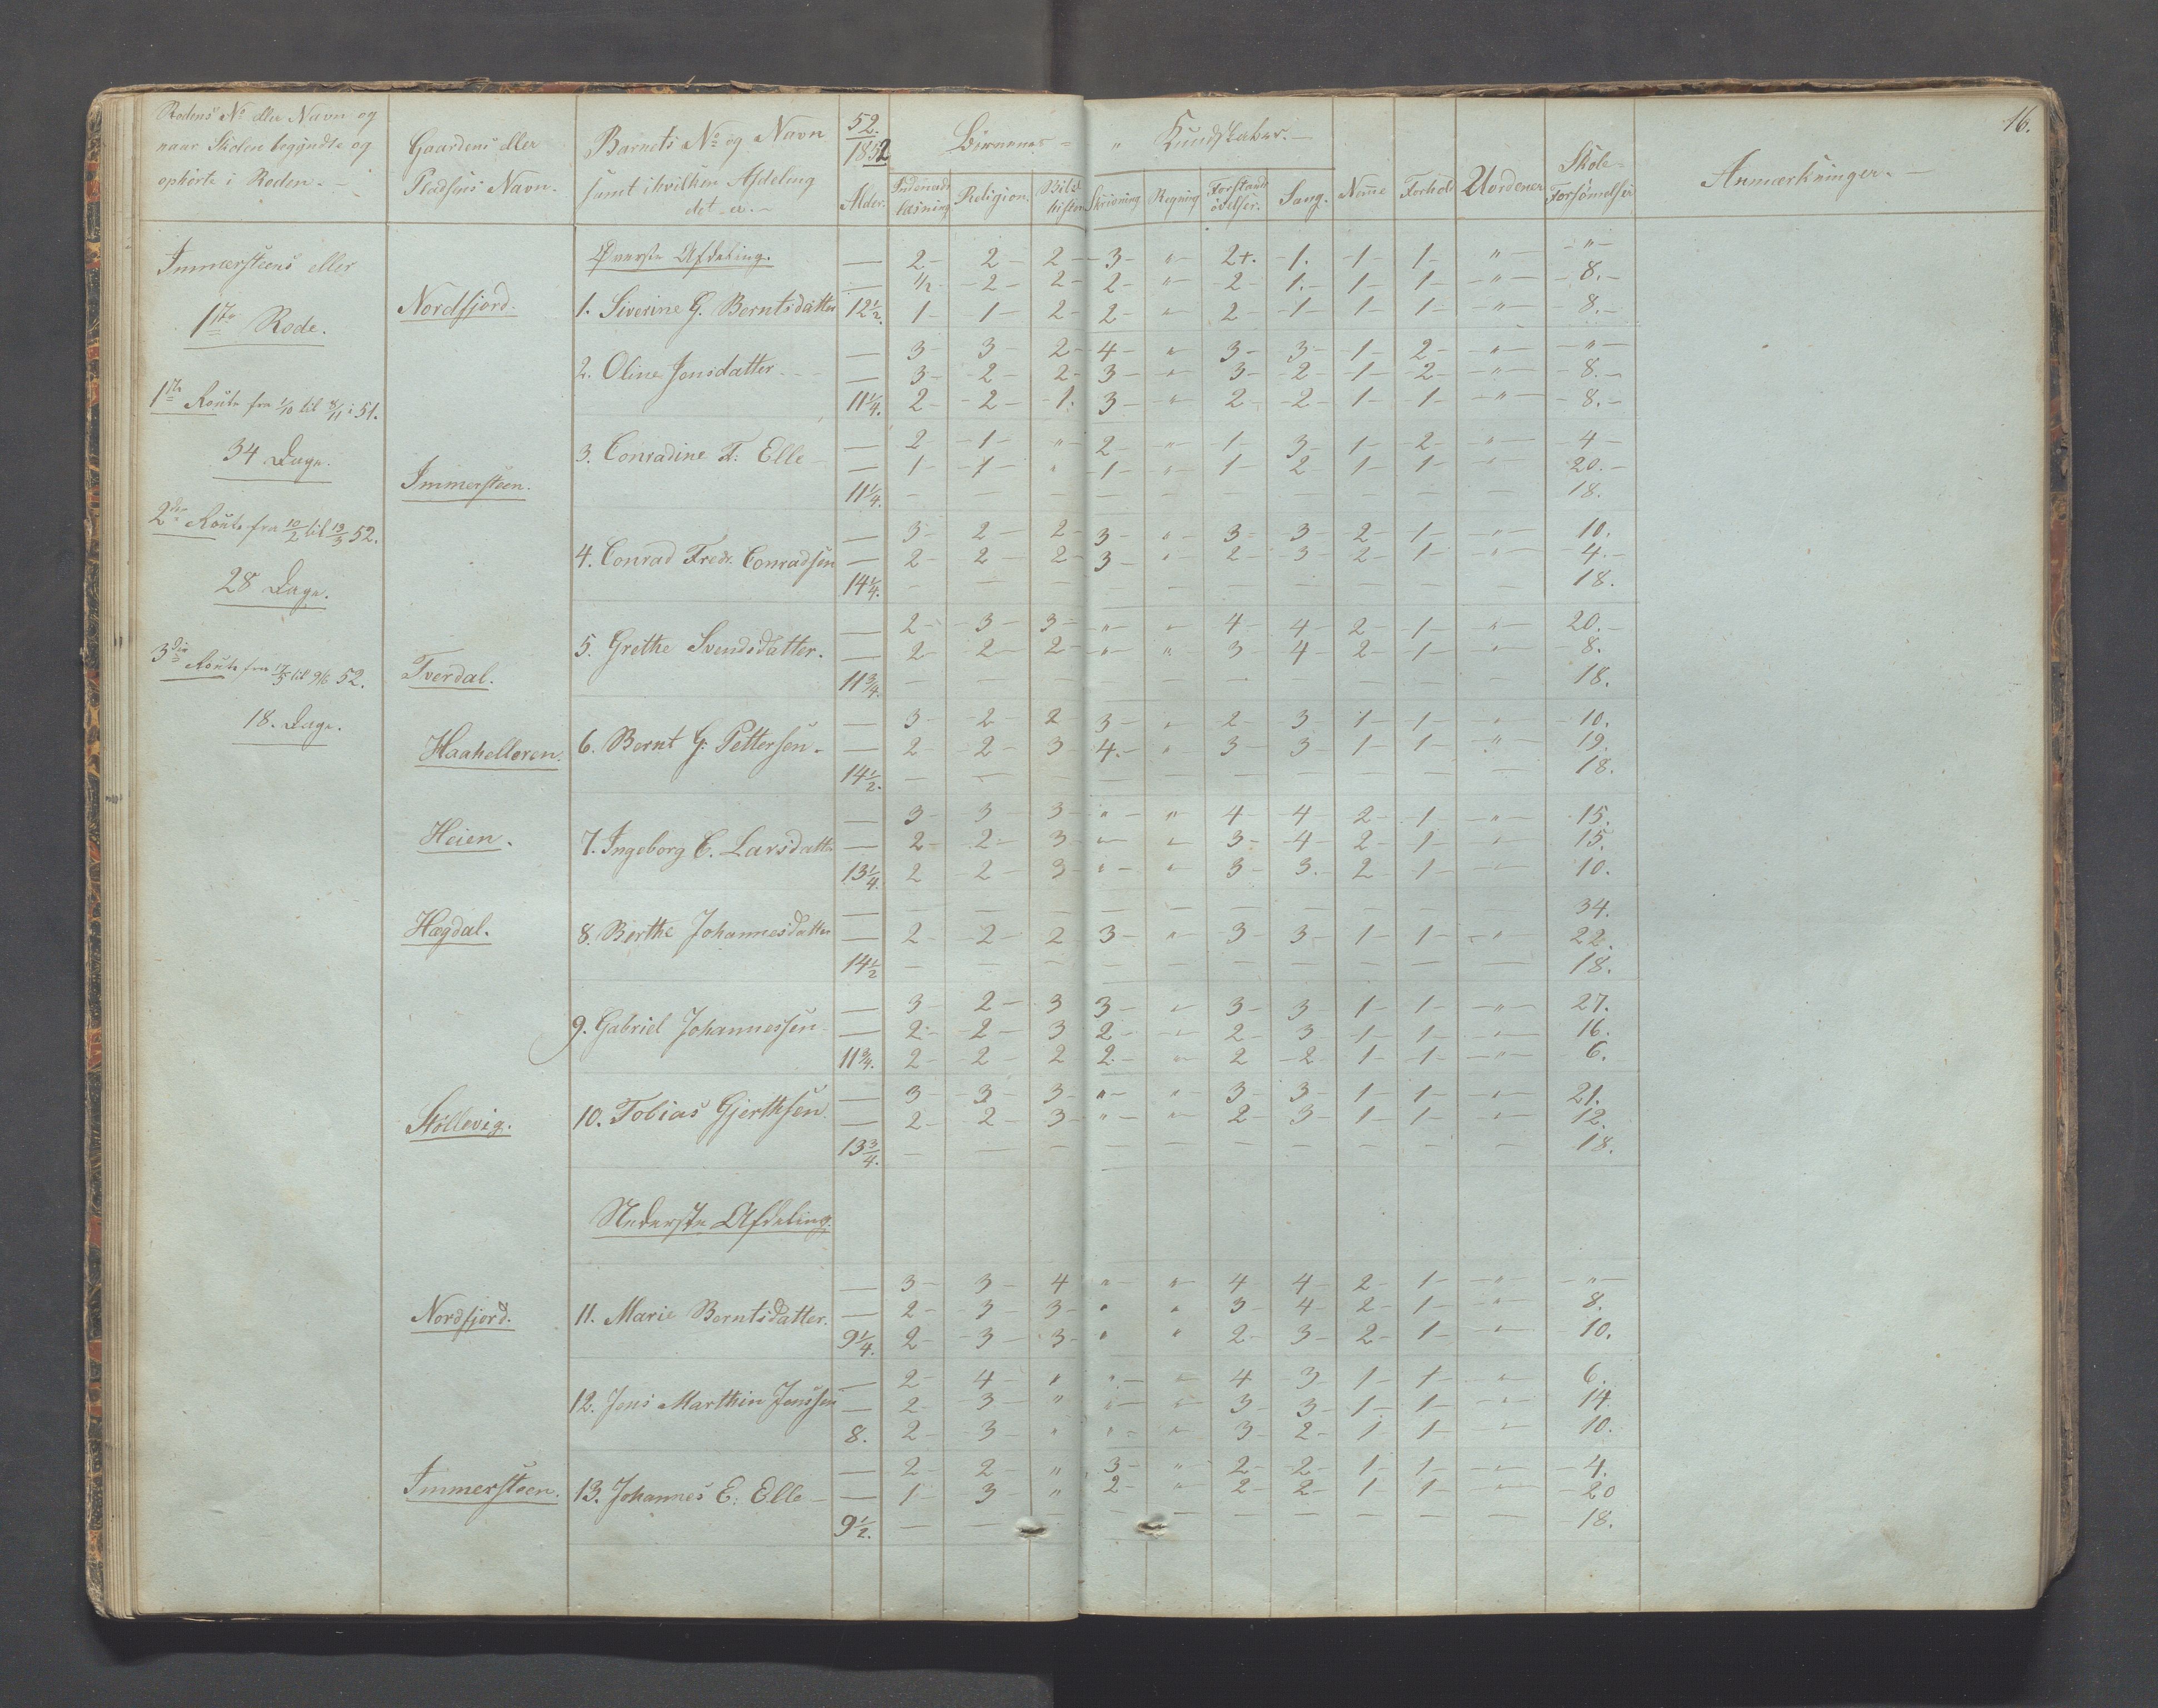 16.
Rodens No eller Navn og
naar Skolen begyndte og
ophørte i Roden.
Gaardens eller
Pladsens Navn.
Barnets No og Navn
samt ihvilken Afdeling
det er.
52.
1852
Alder.
Børnenes " Kundskaber.
Indenad
læsning
Religion.
Bibel
histor.
Skrivning
Regning
Forstands
øvelser.
Sang.
Nemme
Forhold
Uordener
Skole-
Forsømelser
Anmærkninger.
Immersteens eller
1ste Rode.
1ste Route fra 1/10 til 8/11 i 51.
34 Dage.
2den Route fra 10/2 til 13/3 52.
28 Dage.
3die Route fra 17/5 til 9/6 52.
18. Dage.
Øverste Afdeling.
— 2 – 2 – 2 – 3 – " – 2+. – 1. – 1 – 1 – " – "
— 1/2 – 2 – 2 – 2 – " – 2 – 1. – 1 – 1 – " – 8.
Nordfjord. 1. Siverine G. Berntsdatter 12 1/2. 1 – 1 – 2 – 2 – " – 2 – 1 – 1 – 1 – " – 8.
— 3 – 3 – 2 – 4 – " – 3 – 3 – 1 – 2 – " – "
2. Oline Jensdatter — 3 – 2 – 2 – 3 – " – 3 – 2 – 1 – 2 – " – 8.
11 1/4. 2 – 2 – 1. 3 – " – 2 – 2 – 1 – 1 – " – 8.
— 2 – 1 – " – 2 – " – 1 – 3 – 1 – 2 – " – 4
Immersteen. 3. Conradine T. Elle — 1 – 1 – " – 1 – " – 1 – 2 – 1 – 1 – " – 20.
11 1/4. — — — — — — — — — — 18.
— 3 – 2 – 2 – 3 – " – 3 – 3 – 2 – 1 – " – 10.
4. Conrad Fredr. Conradsen — 2 – 2 – 2 – 3 – " – 2 – 3 – 2 – 1 – " – 4.
14 1/4. — — — — — — — — — — 18.
— 2 – 3 – 3 – " – " – 4 – 4 – 2 – 1 – " – 20.
5. Grethe Svendsdatter. — 2 – 2 – 2 – " – " – 3 – 4 – 2 – 1 – " – 8.
Tverdal. 11 3/4. — — — — — — — — — — 18.
— 3 – 2 – 2 3 – " – 2 – 3 – 1 – 1 – " – 10.
Haahelleren. 6. Bernt G. Pettersen. — 2 – 2 – 3 – 4. – " – 3 – 3 – 1 – 1 – " – 19.
14 1/2. — — — — — — — — — — 18.
— 3 – 3 – 3 – " – " – 4 – 4 – 2 – 1 – " – 15.
Heien. 7. Ingeborg C. Larsdatter — 2 – 2 – 3 – " – " – 3 – 4 – 2 – 1 – " – 15.
13 1/4. 2 2 – 3 – " – " – 3 – 3. – 2 – 1 – " – 10.
— — — — — — — — — — — 34.
Hægdal. 8. Berthe Johannesdatter — 2 – 2 – 2 3 – " – 3 – 3 – 1 – 1 – " – 22.
14 1/2 — — — — — — — — — — 18.
— 3 – 2 – 3 3 – " – 3 – 3 – 1 – 1 – " – 27.
9. Gabriel Johannessen — 2 – 2 – 3 2 – " – 2 – 3 – 1 – 1 – " – 16.
11 3/4. 2 – 2 – 2 2. – " – 2 – 2 – 1 – 1 – " – 6.
— 3 – 3 – 3 – " – " – 3 – 3 – 1 – 1 – " – 21.
Stollevig. 10. Tobias Gjerthsen — 2 – 2 – 3 – " – " – 2 – 3 – 1 – 1 – " – 12.
13 3/4. — — — — — — — — — — 18.
Nederste Afdeling.
— 3 – 3 – 4 " – " – 4 – 4 – 2 – 1 – " – "
Nordfjord. 11. Marie Berntsdatter. — 2 – 3 – 3 – " " 3 – 4 – 2 – 1 – " – 8.
9 1/4. 2 – 3 – 3 – " " 2 – 3 – 2 – 1 – " – 10.
— 2 – 4 – " " – " – 4 – 3 – 1 – 1 – " – 6.
12. Jens Marthin Jenssen — 2 – 3 – " " – " – 3 – 3 – 1 – 1 – " – 14.
8. 2 – 3 – " " – " – 3 – 2 – 1 1 – " – 10.
— 2 – 2 – " 3 – " – 2 – 2 – 1 – 1 – " – 4.
Immersteen. 13. Johannes E. Elle — 1 – 3 – " 2 – " – 2 – 2 – 1 1 – " – 20
9 1/2. — — — — — — — — — — 18.